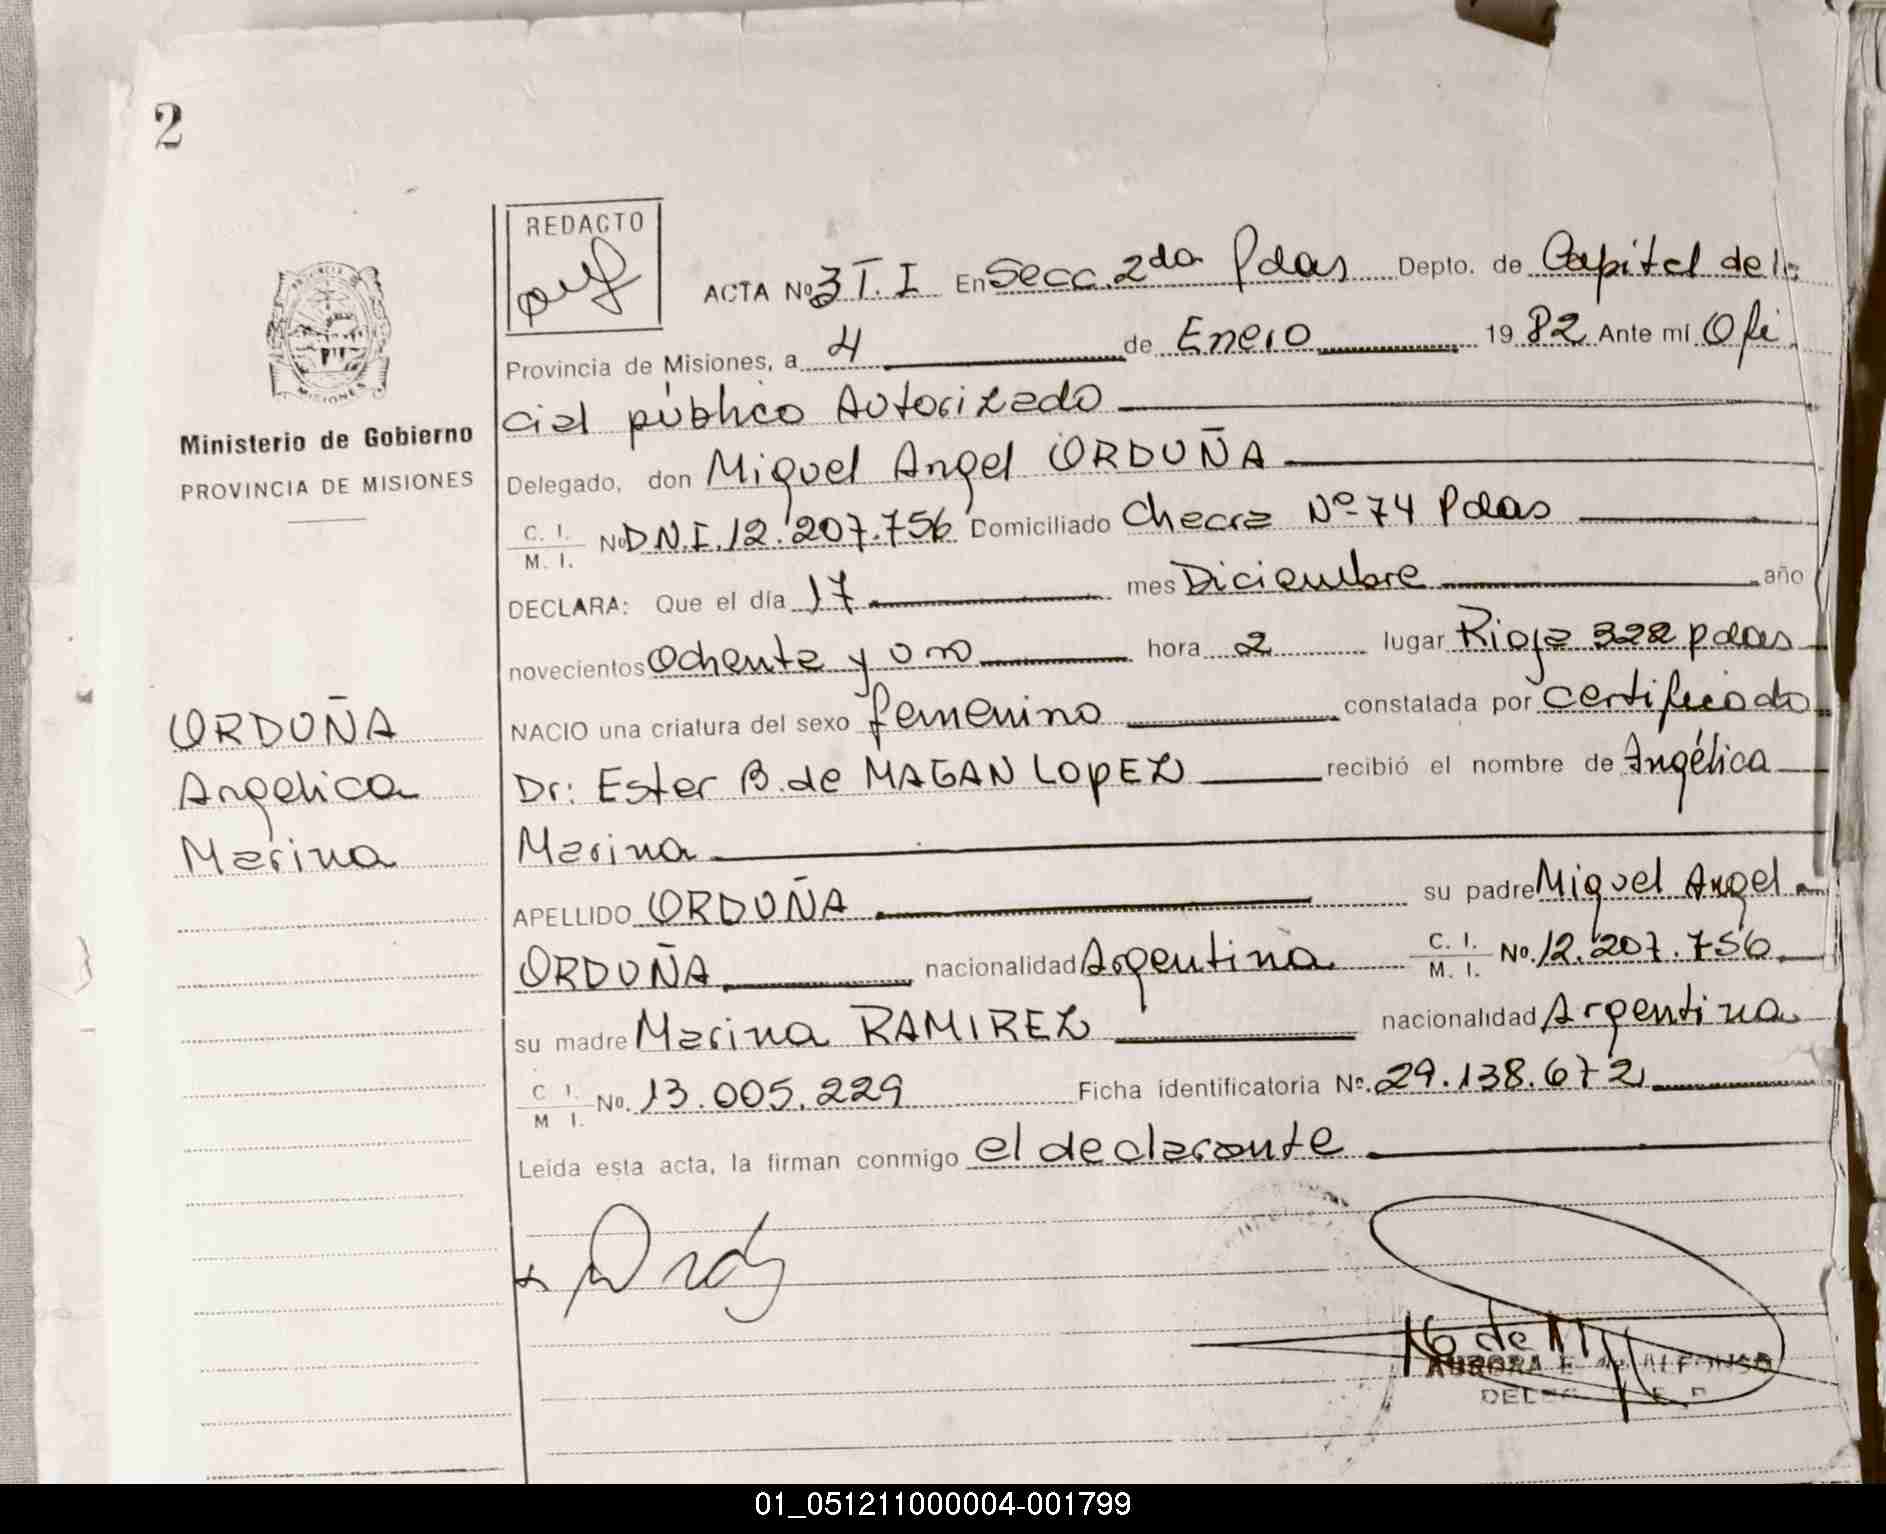 2
REDACTO
ACTA No 3 T. I En Secc. 2da Pdas Depto. de Capital de la
Provincia de Misiones, a 4 de Enero 1982 Ante mí Ofi
cial público Autorizado
Ministerio de Gobierno
PROVINCIA DE MISIONES
Delegado, don Miguel Angel ORDUÑA
C. I.
M. I.
No D.N.I. 12.207.756 Domiciliado Chacra Nº 74 Pdas
DECLARA: Que el día 17 mes Diciembre año
novecientos Ochenta y uno hora 2 lugar Rioja 322 Pdas
NACIO una criatura del sexo femenino constalada por certificado
Dr: Ester B. de MAGAN LOPEZ recibió el nombre de Angélica
Marina
ORDUÑA
Angelica
Marina
APELLIDO ORDUÑA su padre Miguel Angel
ORDUÑA nacionalidad Argentina C. I. M. I. No. 12.207.756
su madre Marina RAMIREZ nacionalidad Argentina
C I. M I. No. 13.005.229 Ficha identificatoria Nº. 29.138.672
Leída esta acta, la firman conmigo el declarante
AURORA E. de ALFONSO
01_051211000004-001799